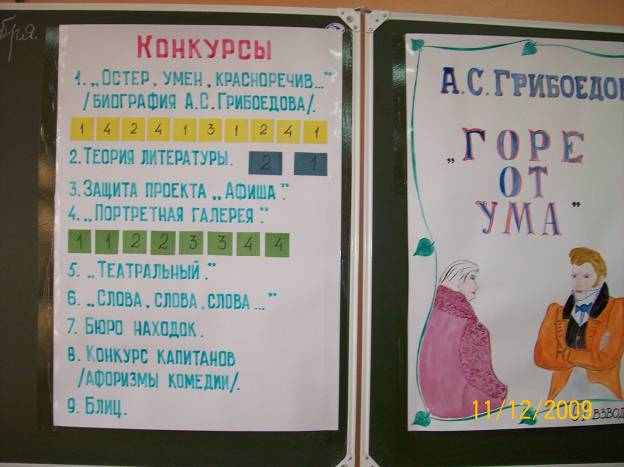 бря.
КОНКУРСЫ
1. „ОСТЕР, УМЕН, КРАСНОРЕЧИВ..."
/БИОГРАФИЯ А.С.ГРИБОЕДОВА/.
1 4 2 4 1 3 1 2 4 1
2. ТЕОРИЯ ЛИТЕРАТУРЫ. 2 1
3. ЗАЩИТА ПРОЕКТА „АФИША".
4. „ПОРТРЕТНАЯ ГАЛЕРЕЯ".
1 1 2 2 3 3 4 4
5. „ТЕАТРАЛЬНЫЙ."
6. „СЛОВА, СЛОВА, СЛОВА ..."
7. БЮРО НАХОДОК.
8. КОНКУРС КАПИТАНОВ
/АФОРИЗМЫ КОМЕДИИ/.
9. БЛИЦ.
А.С.ГРИБОЕДОВ
„ГОРЕ
ОТ
УМА"
ВЗВОД
11/12/2009